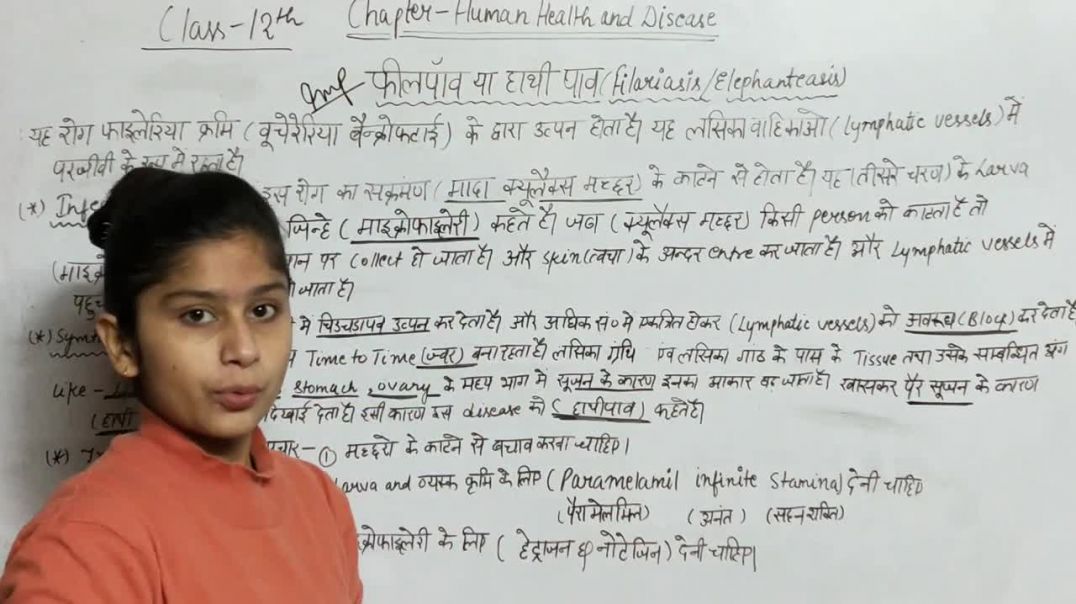 Class-12th Chapter-Human Health and Disease
Imp फीलपाँव या हाथी पाव (filariasis/Elephanteasis)
यह रोग फाइलेरिया क्रमि (वूचेरेरिया बैन्क्रोफ्टाई) के द्वारा उत्पन होता है। यह लसिका वाहिकाओ (lymphatic vessels) में
परजीवी के रूप में रहता है।
(*) इस रोग का सक्रमण (मादा क्यूलैक्स मच्छर) के काटने से होता है। यह (तीसरे चरण) के Larva
जिन्हे (माइक्रोफाइलेरी) कहते है। जब (क्यूलैक्स मच्छर) किसी person को काटता है तो
पर collect हो जाता है। और skin (त्वचा) के अन्दर enter कर जाता है। और Lymphatic vessels में
जाता है।
(*) में चिडचडापन उत्पन कर देता है। और अधिक सं० मे एकत्रित होकर (Lymphatic vessels) को अवरूध (Block) कर देता है
Time to Time (ज्वर) बना रहता है। लसिका ग्रंथि एंव लसिका गाठ के पास के Tissue तथा उसके सम्बन्धित अंग
Like- Stomach, ovary के मध्य भाग मे सूजन के कारण इनका आकार बढ़ जाता है। खासकर पैर सूजन के कारण
दिखाई देता है। इसी कारण इस disease को (हाथीपाव) कहते है।
(*) ① मच्छरो के काटने से बचाव करना चाहिए।
Larva and व्यस्क कृमि के लिए (Paramelamil infinite Stamina) देनी चाहिए
(पैरामेलामिल) (अनंत) (सहनशक्ति)
के लिए (हेट्राजन & नोटेजिन) देनी चाहिए।